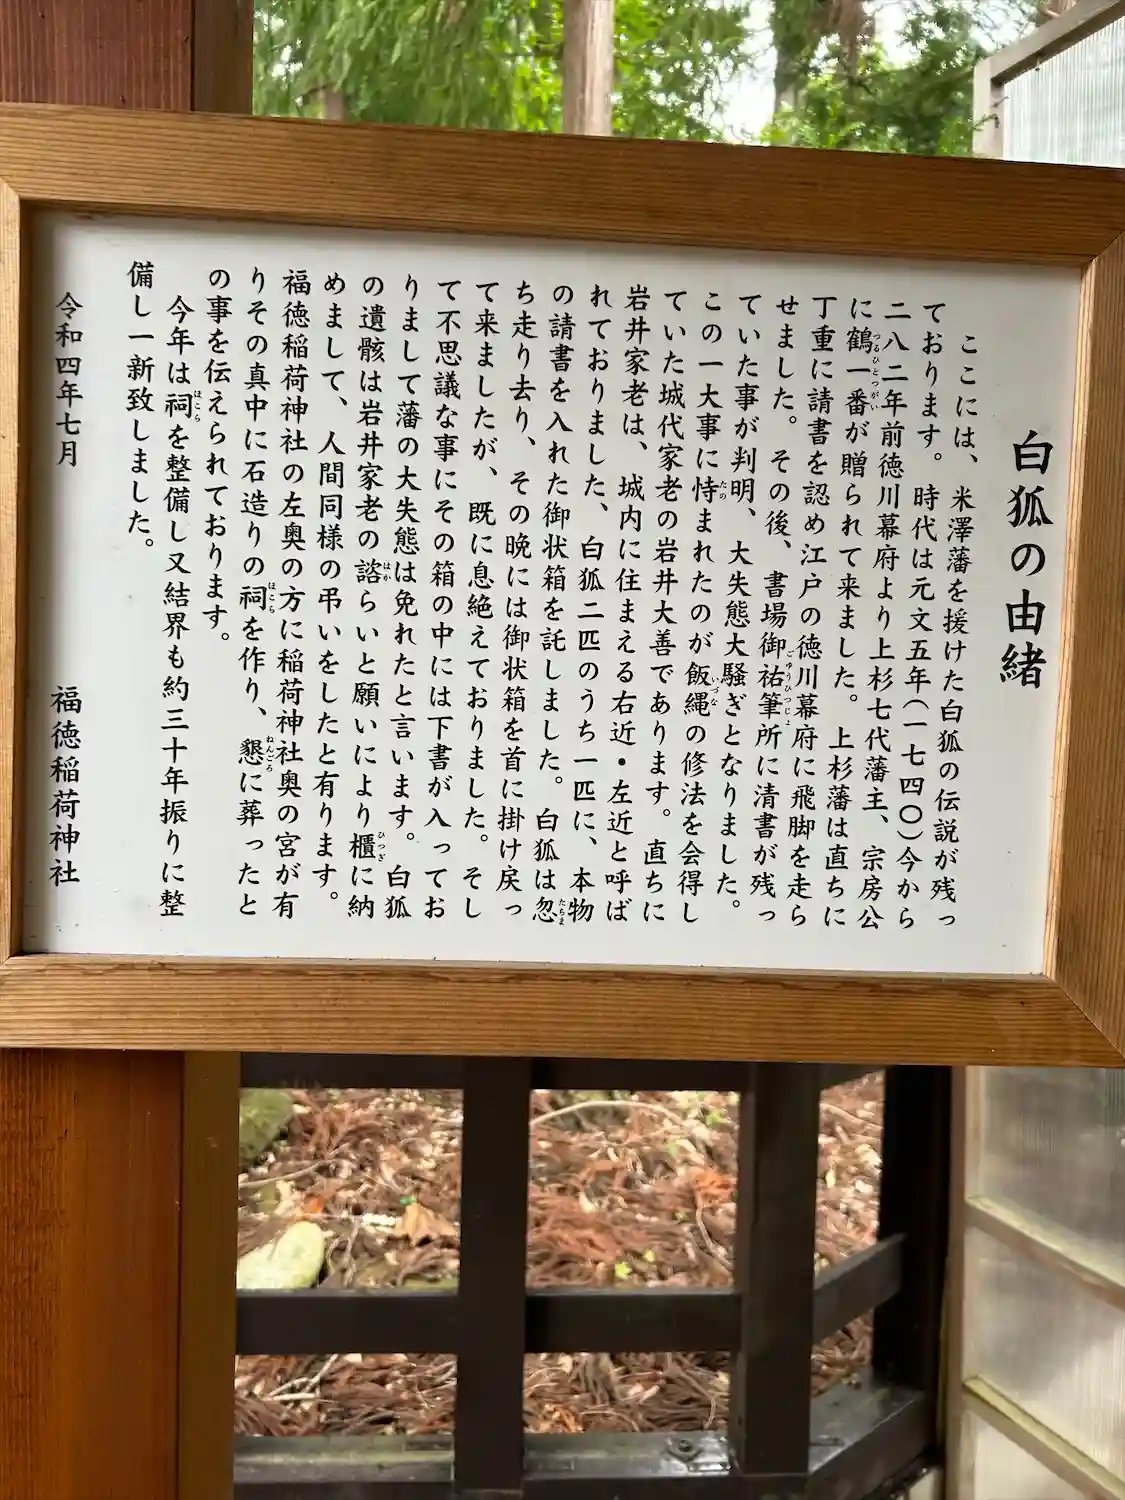 白狐の由緒
ここには、米澤藩を援けた白狐の伝説が残っ
ております。時代は元文五年(一七四〇)今から
二八二年前徳川幕府より上杉七代藩主、宗房公
に鶴一番が贈られて来ました。上杉藩は直ちに
つるひとつがい
丁重に請書を認め江戸の徳川幕府に飛脚を走ら
せました。その後、書場御祐筆所に清書が残っ
ごゆうひつじょ
ていた事が判明、大失態大騒ぎとなりました。
この一大事に恃まれたのが飯縄の修法を会得し
たの
いづな
ていた城代家老の岩井大善であります。直ちに
岩井家老は、城内に住まえる右近・左近と呼ば
れておりました、白狐二匹のうち一匹に、本物
の請書を入れた御状箱を託しました。白狐は忽
たちま
ち走り去り、その晩には御状箱を首に掛け戻っ
て来ましたが、既に息絶えておりました。そし
て不思議な事にその箱の中には下書が入ってお
りまして藩の大失態は免れたと言います。白狐
の遺骸は岩井家老の諮らいと願いにより櫃に納
はか
ひつぎ
めまして、人間同様の弔いをしたと有ります。
福徳稲荷神社の左奥の方に稲荷神社奥の宮が有
りその真中に石造りの祠を作り、懇に葬ったと
ほこら
ねんごろ
の事を伝えられております。
今年は祠を整備し又結界も約三十年振りに整
ほこら
備し一新致しました。
令和四年七月
福徳稲荷神社